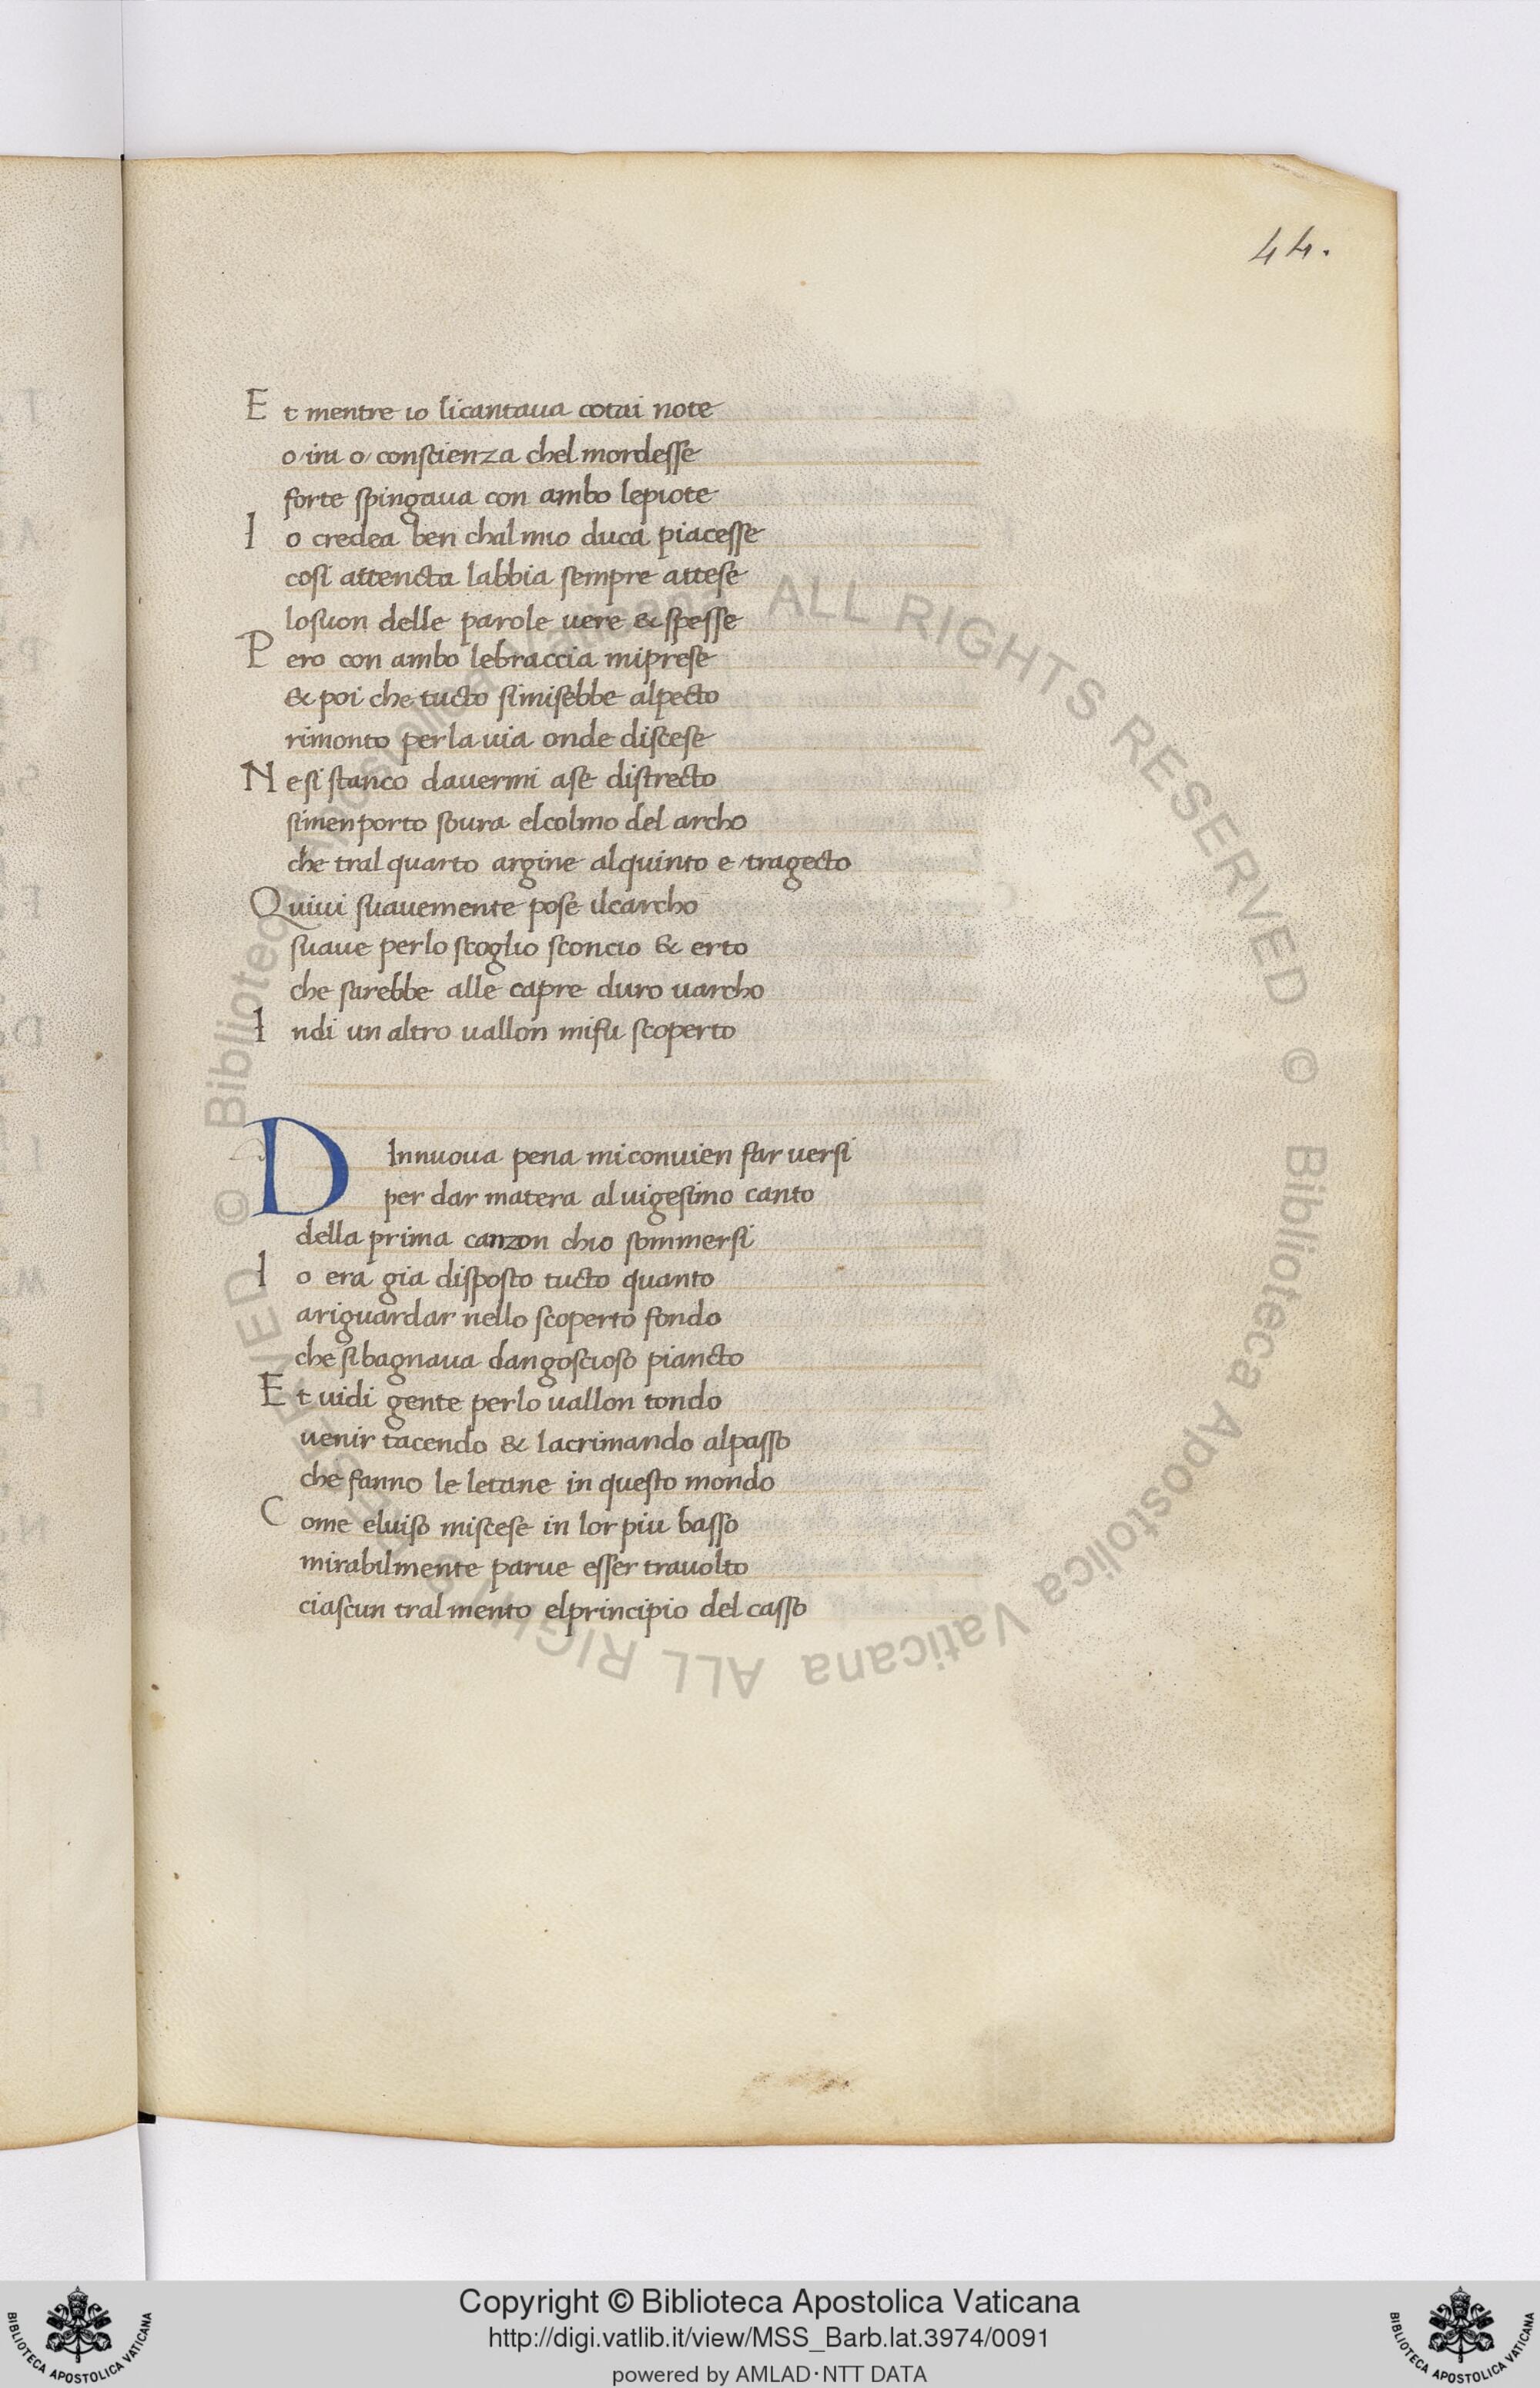 44.
Et mentre io licantaua cotai note
o ira o conscienza chel mordesse
forte spingaua con ambo lepiote
Io credea ben chal mio duca piacesse
cosi attencta labbia sempre attese
losuon delle parole uere & spesse
Pero con ambo lebraccia miprese
& poi che tucto simisebbe alpecto
rimonto perla uia onde discese
Ne si stanco dauermi ase distrecto
simen porto soura elcolmo del archo
che tral quarto argine alquinto e tragecto
Quiui suauemente pose ilcarcho
suaue perlo scoglio sconcio & erto
che sarebbe alle capre duro uarcho
Indi un altro uallon mifu scoperto
DInnuoua pena miconuien far uersi
per dar matera al uigesimo canto
della prima canzon chio sommersi
Io era gia disposto tucto quanto
ariguardar nello scoperto fondo
che sibagnaua dangoscioso piancto
Et uidi gente perlo uallon tondo
uenir tacendo & lacrimando alpasso
che fanno le letane in questo mondo
Come eluiso miscese in lor piu basso
mirabilmente parue esser trauolto
ciascun tral mento elprincipio del casso
© Biblioteca Apostolica Vaticana ALL RIGHTS RESERVED © Biblioteca Apostolica Vaticana ALL RIGHTS RESERVED
Copyright © Biblioteca Apostolica Vaticana
http://digi.vatlib.it/view/MSS_Barb.lat.3974/0091
powered by AMLAD·NTT DATA
BIBLIOTECA APOSTOLICA VATICANA
BIBLIOTECA APOSTOLICA VATICANA